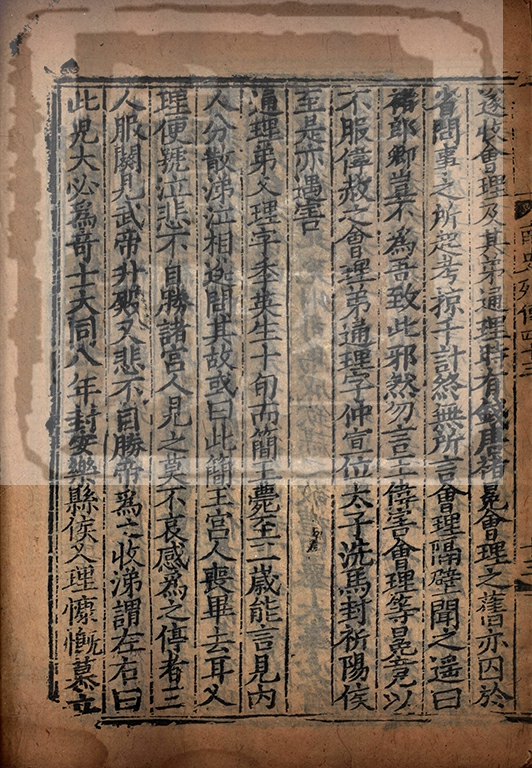 遂收會理及其弟通理時有錢唐褚冕會理之舊亦囚於
省問事之所起考掠千計終無所言會理隔壁聞之遥曰
褚郎卿豈不為吾致此邪然勿言王偉害會理等冕竟以
不服偉赦之會理弟通理字仲宣位太子洗馬封祈陽侯
至是亦遇害
通理弟乂理字季英生十旬而簡王薨至二歲能言見内
人分散涕泣相送問其故或曰此簡王宮人喪畢去耳乂
理便號泣悲不自勝諸宮人見之莫不哀感為之停者三
人服闋見武帝升殿又悲不自勝帝為之收涕謂左右曰
此児大必為竒士大同八年封安樂縣侯乂理慷慨慕立